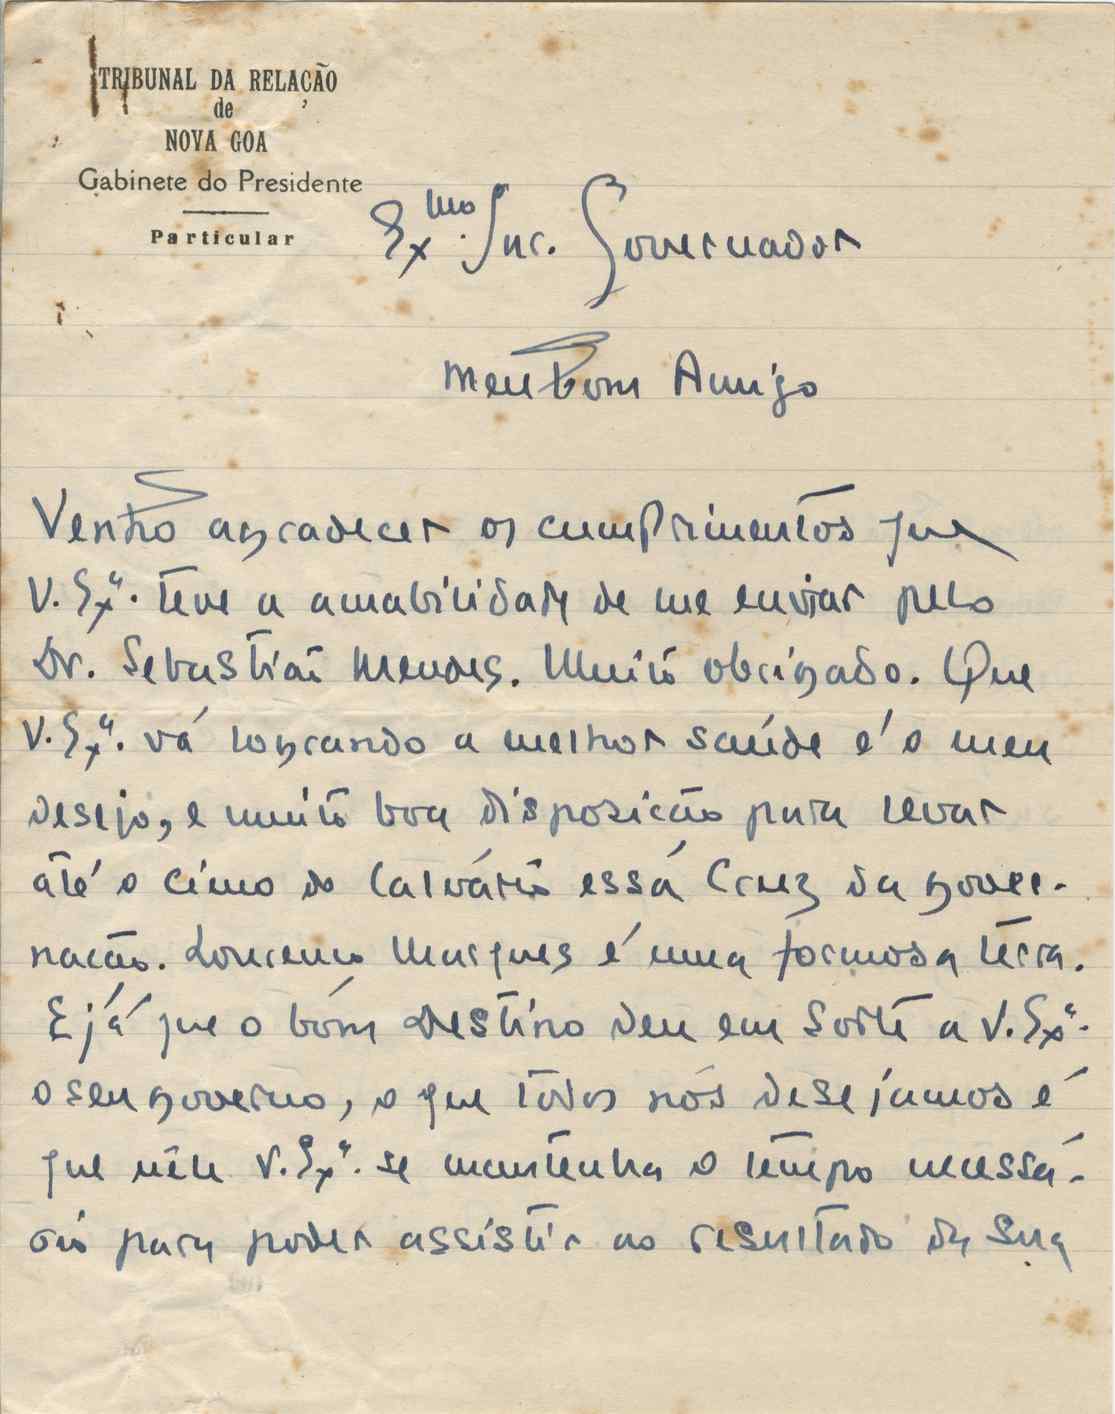 TRIBUNAL DA RELAÇÃO
de
NOVA GOA
Gabinete do Presidente
Particular
Exmo. Snr. Governador
Meu bom Amigo
Venho agradecer os cumprimentos que
V. Exª. teve a amabilidade de me enviar pelo
Dr. Sebastião Mendes. Muito obrigado. Que
V. Exª. vá logrando a melhor saúde é o meu
desejo, e muito boa disposição para levar
até o cimo do Calvário essa Cruz da gover-
nação. Lourenço Marques é uma formosa terra.
E já que o bom Destino deu em sorte a V. Exª.
o seu governo, o que todos nós desejamos é
que nele V. Exª. se mantenha o tempo necessá-
rio para poder assistir ao resultado da sua